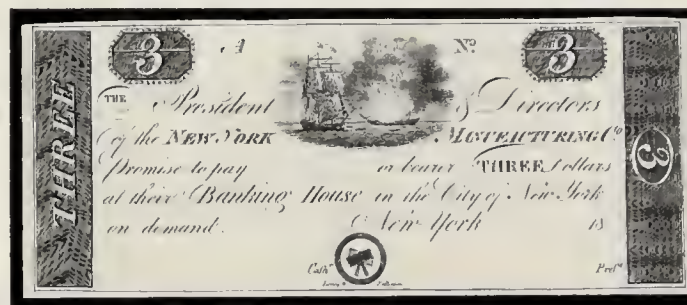 3 A Nº 3
THREE
THE President & Directors
of the NEW YORK MANUFACTURING Cº
Promise to pay or bearer THREE Dollars
at their Banking House in the City of New York
on demand. New York 18
Cashr Presdt
3